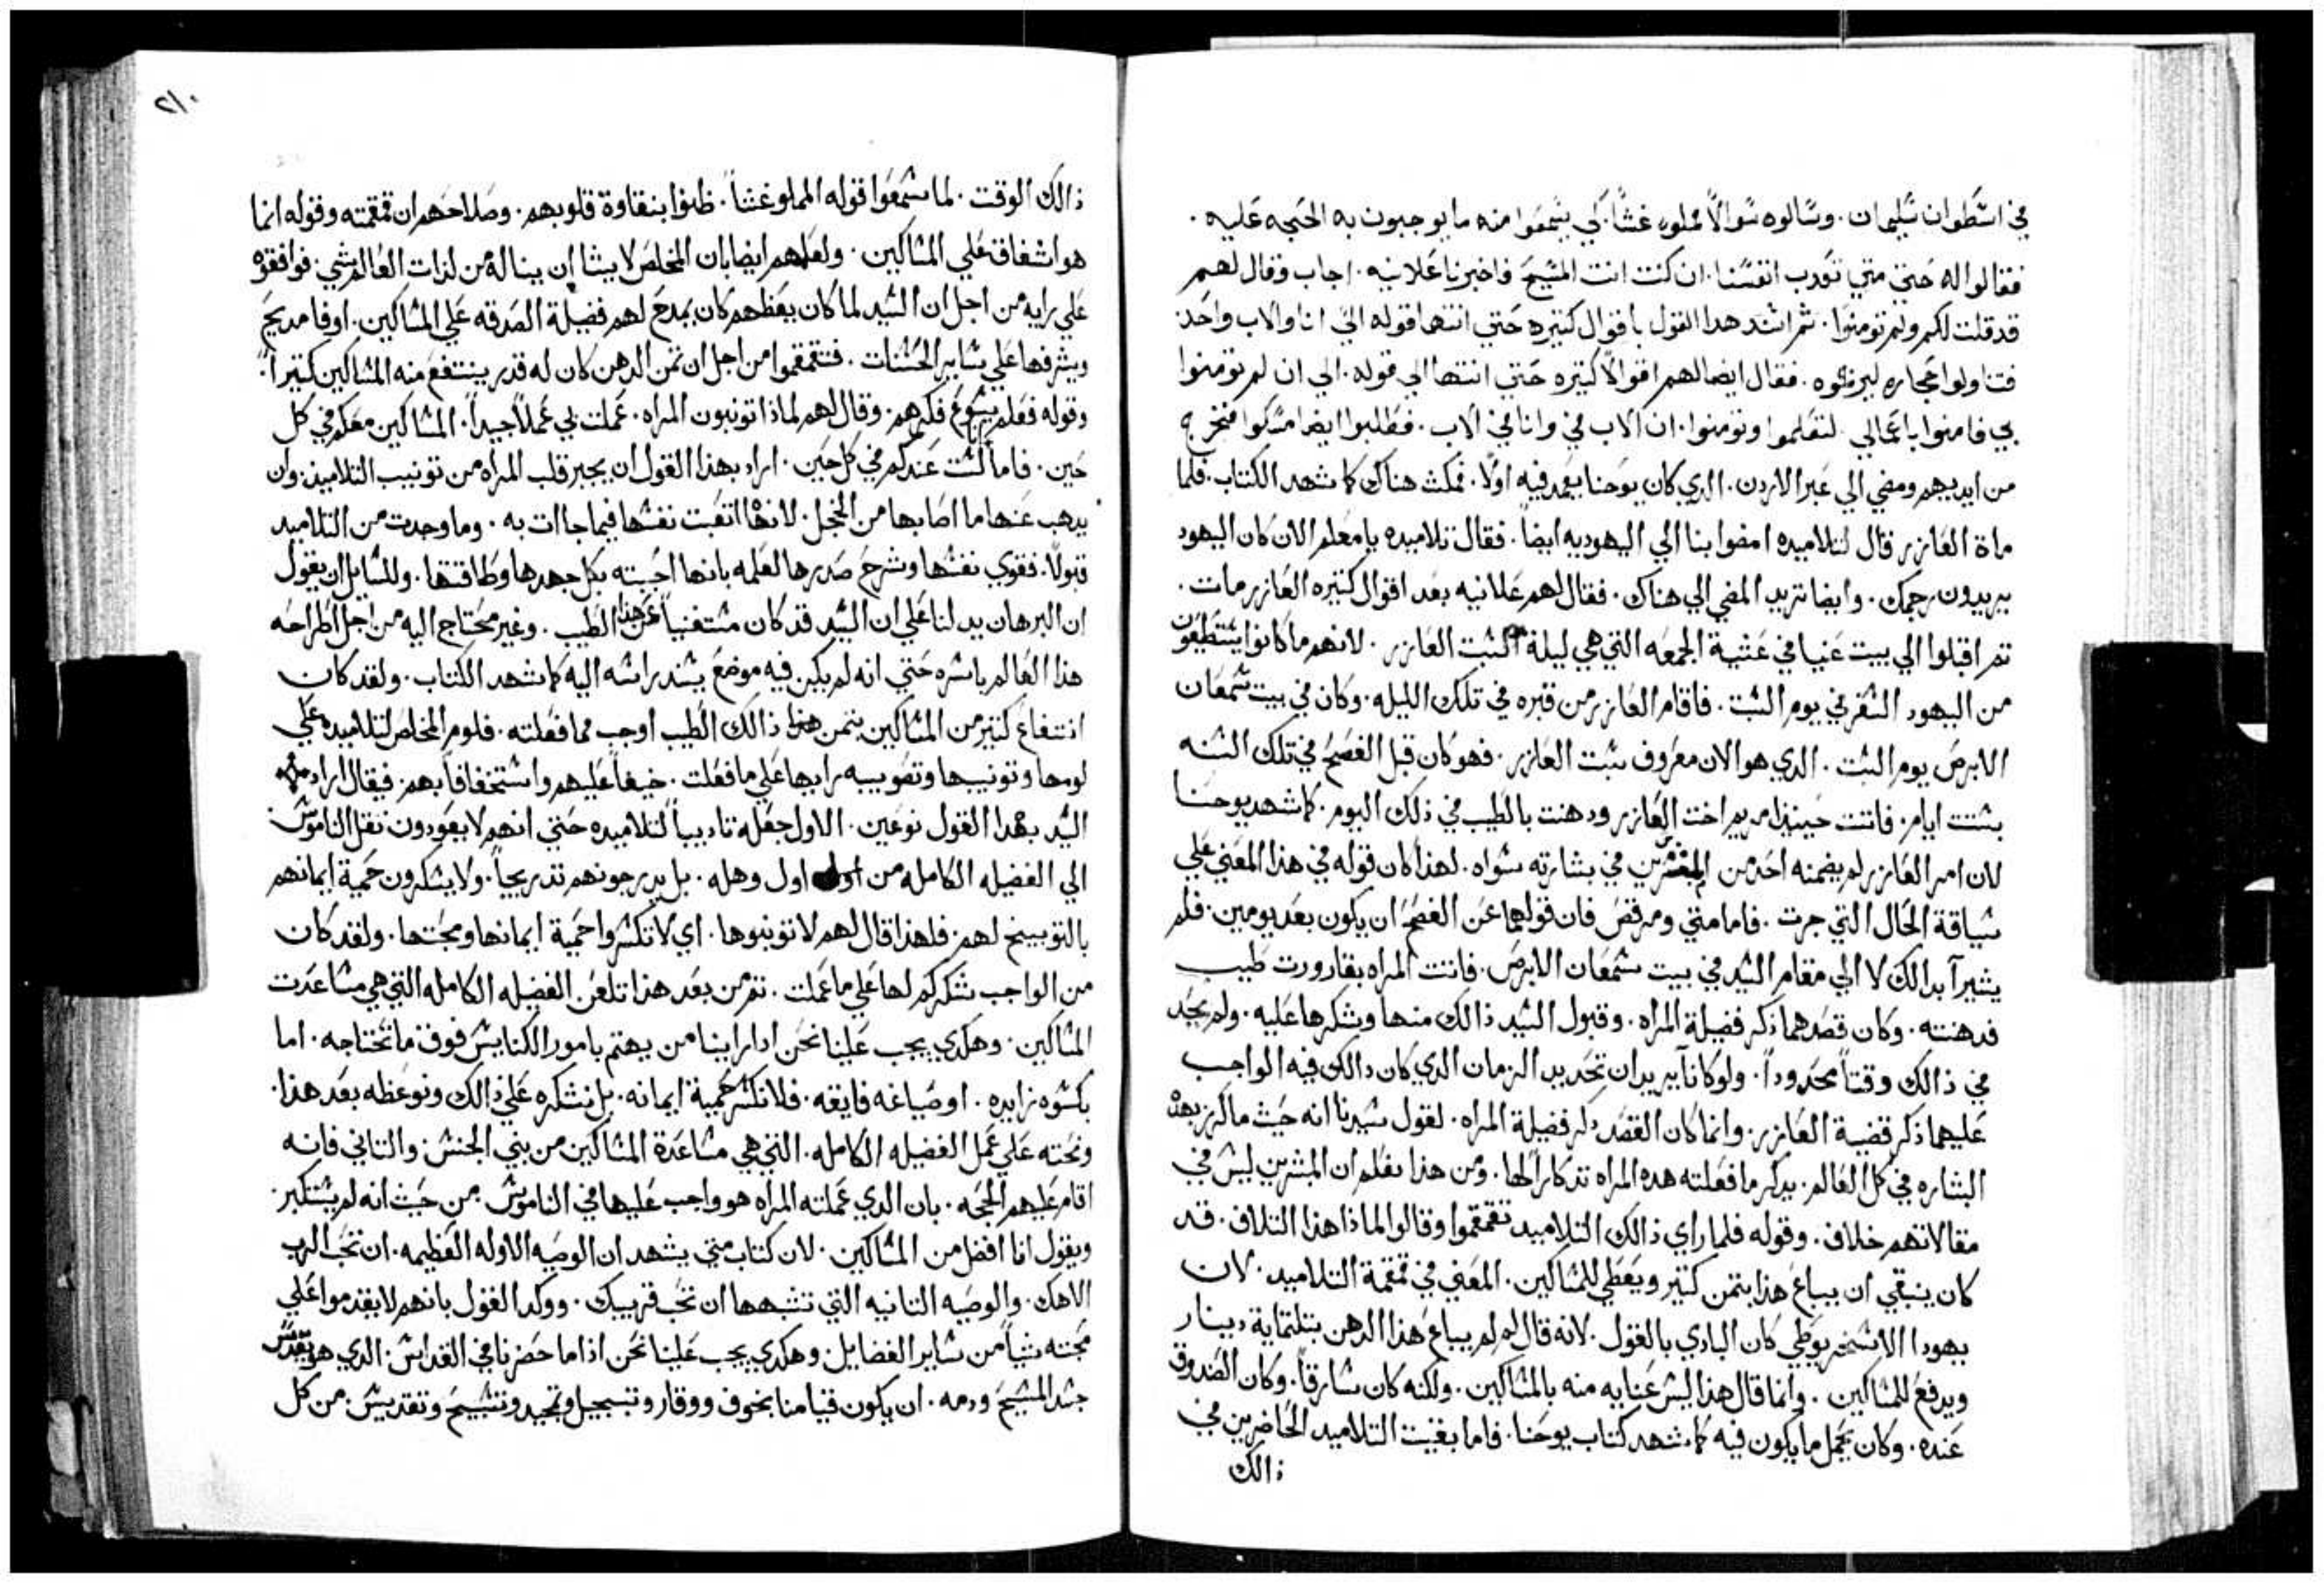 في اسطوان سليمان. وسالوه سوالاً مملوه غشاً. كي يسمعوا منه ما يوجبون به الحجه عليه.
فقالوا له حتي متي تعدب انفسنا. ان كنت انت المسيح فاخبرنا علانيه. اجاب وقال لهم
قد قلت لكم ولم تومنوا. ثم اسند هدا القول باقوال كتيره حتي انتها قوله الي انا والاب واحد
فتناولوا حجاره ليرجموه. فقال ايضا لهم اقوالاً كتيره حتي انتها الي قوله. الي ان لم تومنوا
بي فامنوا باعمالي. لتعلموا وتومنوا. ان الاب في وانا في الاب. فطلبوا ايضا مسكوا فخرج
من ايديهم ومضي الي عبر الاردن. الدي كان يوحنا يعمد فيه اولا. فمكث هناك كما شهد الكتاب. فلما
ماة العازر قال لتلاميده امضوا بنا الي اليهوديه ايضا. فقال تلاميده يا معلم الان كان اليهود
يريدون رجمك. وايضا تريد المضي الي هناك. فقال لهم علانيه بعد اقوال كتيره العازر مات.
تم اقبلوا الي بيت عنيا في عشية الجمعه التي هي ليلة سبت العازر. لانهم ما كانوا يستطيعون
من اليهود السفر في يوم السبت. فاقام العازر من قبره في تلك الليله. وكان في بيت سمعان
الابرص يوم السبت. الدي هو الان معروف بسبت العازر. فهو كان قبل الفصح في تلك السنه
بستت ايام. فاتت حينيذ مريم اخت العازر ودهنت بالطيب في ذلك اليوم. كما شهد يوحنا
لان امر العازر لم يضمنه احد من المبشرين في بشارته سواه. لهذا كان قوله في هذا المعني علي
سياقة الحال التي جرت. فاما متي ومرقص فان قولهما عن الفصح ان يكون بعد يومين. فلم
يشيرآ بدالك لا الي مقام السيد في بيت سمعان الابرص. فاتت المراه بقارورت طيب
فدهنته. وكان قصدهما ذكر فضيلة المراه. وقبول السيد ذالك منها وشكرها عليه. ولم يحد
في ذالك وقتاً محدوداً. ولو كانآ يريدان تحديد الزمان الدي كان دالك فيه الواجب
عليهما ذكر قضية العازر. وانما كان القصد دكر فضيلة المراه. لقول سيدنا انه حيث ما كرز بهذه
البشاره في كل العالم. يدكر ما فعلته هده المراه تدكاراً لها. ومن هذا نعلم ان المبشرين ليس في
مقالاتهم خلاف. وقوله فلما راي ذالك التلاميد تقمقموا وقالوا لماذا هذا التلاف. قد
كان ينبقي ان يباع هذا بتمن كتير ويعطي للمساكين. المعني في قمقمة التلاميد. لان
يهودا الاسخريوطي كان البادي بالقول. لانه قال لم لم يباع هذا الدهن بتلتماية دينار
ويدفع للمساكين. وانما قال هذا ليس عنايه منه بالمساكين. ولكنه كان سارقاً. وكان الصندوق
عنده. وكان يحمل ما يكون فيه كما شهد كتاب يوحنا. فاما بقيت التلاميد الحاضرين في
ذالك
٢١٠
ذالك الوقت. لما سمعوا قوله المملو غشاً. ظنوا بنقاوة قلوبهم. وصلاحهم ان قمقمته وقوله انما
هو اشفاق علي المساكين. ولعلمهم ايضا بان المخلص لا يشا ان يناله من لذات العالم شي. فوافقوه
علي رايه من اجل ان السيد لما كان يعظهم كان يمدح لهم فضيلة الصدقه علي المساكين. اوفا مديح
ويشرفها علي ساير الحسنات. فتقمقموا من اجل ان تمن الدهن كان له قدر ينتفع منه المساكين كتيراً.
وقوله فعلم يسوع فكرهم. وقال لهم لماذا تونبون المراه. عملت بي عملاً جيداً. المساكين معكم في كل
حين. فاما انا لست عندكم في كل حين. اراد بهذا القول ان يجبر قلب المراه من تونيب التلاميذ. وان
يدهب عنها ما اصابها من الخجل. لانها اتعبت نفسها فيما جاات به. وما وجدت من التلاميد
قبولاً. فقوي نفسها وشرح صدرها لعلمه بانها احبته بكل جهدها وطاقتها. وللسايل ان يقول
ان البرهان يدلنا علي ان السيد قد كان مستغنياً عن هذا الطيب. وغير محتاج اليه من اجل اطراحه
هذا العالم باسره حتي انه لم يكن فيه موضع يسند راسه اليه كما شهد الكتاب. ولقد كان
انتفاع كتير من المساكين بتمن هذا ذالك الطيب اوجب مما فعلته. فلوم المخلص لتلاميده علي
لومها وتونيبها وتصويبه رايها علي ما فعلت. حيفاً عليهم واستخفافاً بهم. فيقال اراد
السيد بهدا القول نوعين. الاول جعله تاديباً لتلاميده حتي انهم لا يعودون نقل الناموس
الي الفضيله الكامله من اول وهله. بل يدرجونهم تدريجياً. ولا يكسرون حمية ايمانهم
بالتوبيخ لهم. فلهذا قال لهم لا تونبوها. اي لا تكسروا حمية ايمانها ومحبتها. ولقد كان
من الواجب شكركم لها علي ما عملت. تم من بعد هذا تلقن الفضيله الكامله التي هي مساعدت
المساكين. وهكدي يجب علينا نحن ادا راينا من يهتم بامور الكنايس فوق ما تحتاجه. اما
بكسوه زايده. او صياغه فايقه. فلا نكسر حمية ايمانه. بل نشكره علي ذالك ونوعظه بعد هذا.
ونحته علي عمل الفضيله الكامله. التي هي مساعدة المساكين من بني الجنس. والتاني فانه
اقام عليهم الحجه. بان الدي عملته المراه هو واجب عليها في الناموس. من حيث انه لم يستكبر.
ويقول انا افضل من المساكين. لان كتاب متي يشهد ان الوصيه الاوله العظيمه. ان تحب الرب
الاهك. والوصيه التانيه التي تشبهها ان تحب قريبك. ووكد القول بانهم لا يقدموا علي
محبته شياً من ساير الفضايل. وهكدي يجب علينا نحن اذا ما حضرنا في القداس. الدي هو يقدس
جسد المسيح ودمه. ان يكون قيامنا بخوف ووقار وتبجيل وتمجيد وتسبيح وتقديس. من كل